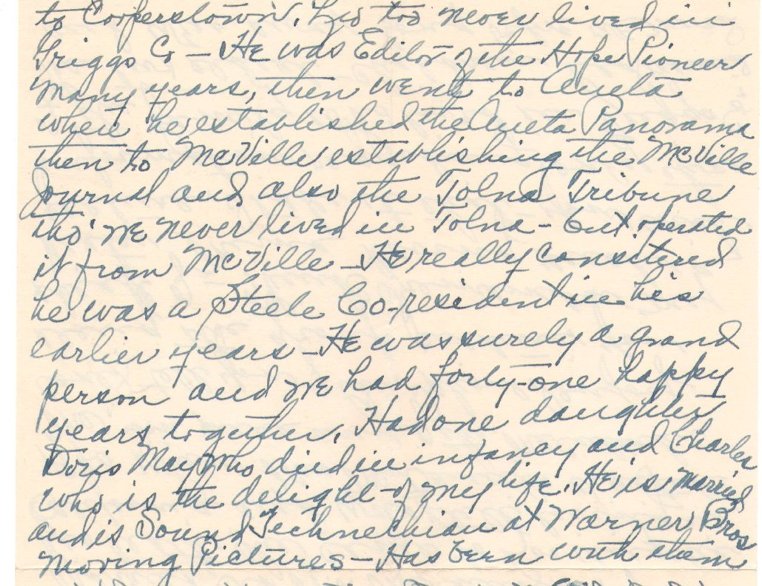 to Cooperstown. but too never lived in
Griggs Co - He was Editor of the Hope Pioneer
many years, then went to Aneta
where he established the Aneta Panorama
then to McVille establishing the McVille
Journal and also the Tolna Tribune
tho' we never lived in Tolna - but operated
it from McVille - He really consitered
he was a Steele Co-resident in his
earlier years - He was surely a grand
person and we had forty-one happy
years together. Had one daughter
Doris May who died in infancy and Charles
who is the delight of my life. He is married
and is Sound Technechian at Warner Bros
Moving Pictures - Has been with them